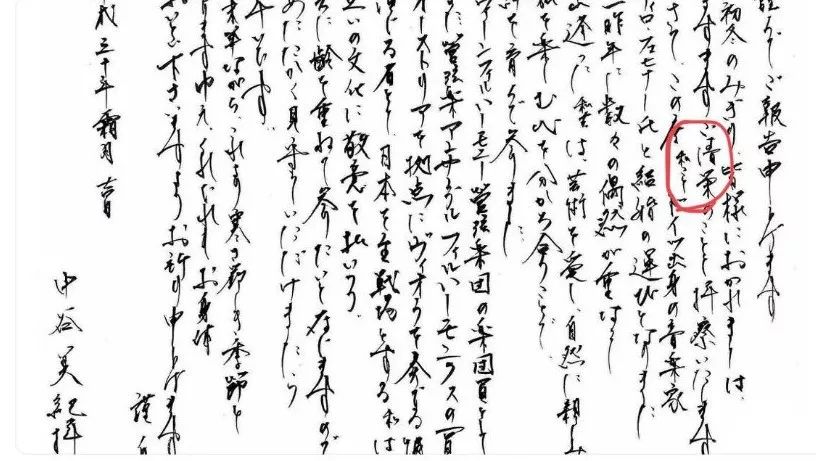 んでご報告申し上げます
初冬のみぎり 皆様におかれましては、
ますますご清栄のことと拝察いたします
さて、この度 私こと ドイツ出身の音楽家
ィロ フェヒナー氏と結婚の運びとなりました
一昨年に数々の偶然が重なり
逢った私達は、芸術を愛し、自然に親しみ
を楽しむ心を分かち合うことで
を育んで参りました
ウィーンフィルハーモニー管弦楽団の楽団員として
また管弦楽アンサンブル フィルハーモニクスの一員
オーストリアを拠点にヴィオラを奏でる
演じる者として 日本を主戦場とする私は
互いの文化に敬意を払いつつ
共に齢を重ねて参りたいと存じますので
あたたかく見守っていただけましたら
幸いです
末筆ながら、これより寒さ厳しき季節と
なりますゆえ、くれぐれもお身体
おいとい下さいますようお祈り申し上げます
謹白
成三十年 霜月 吉日
中谷美紀 拝